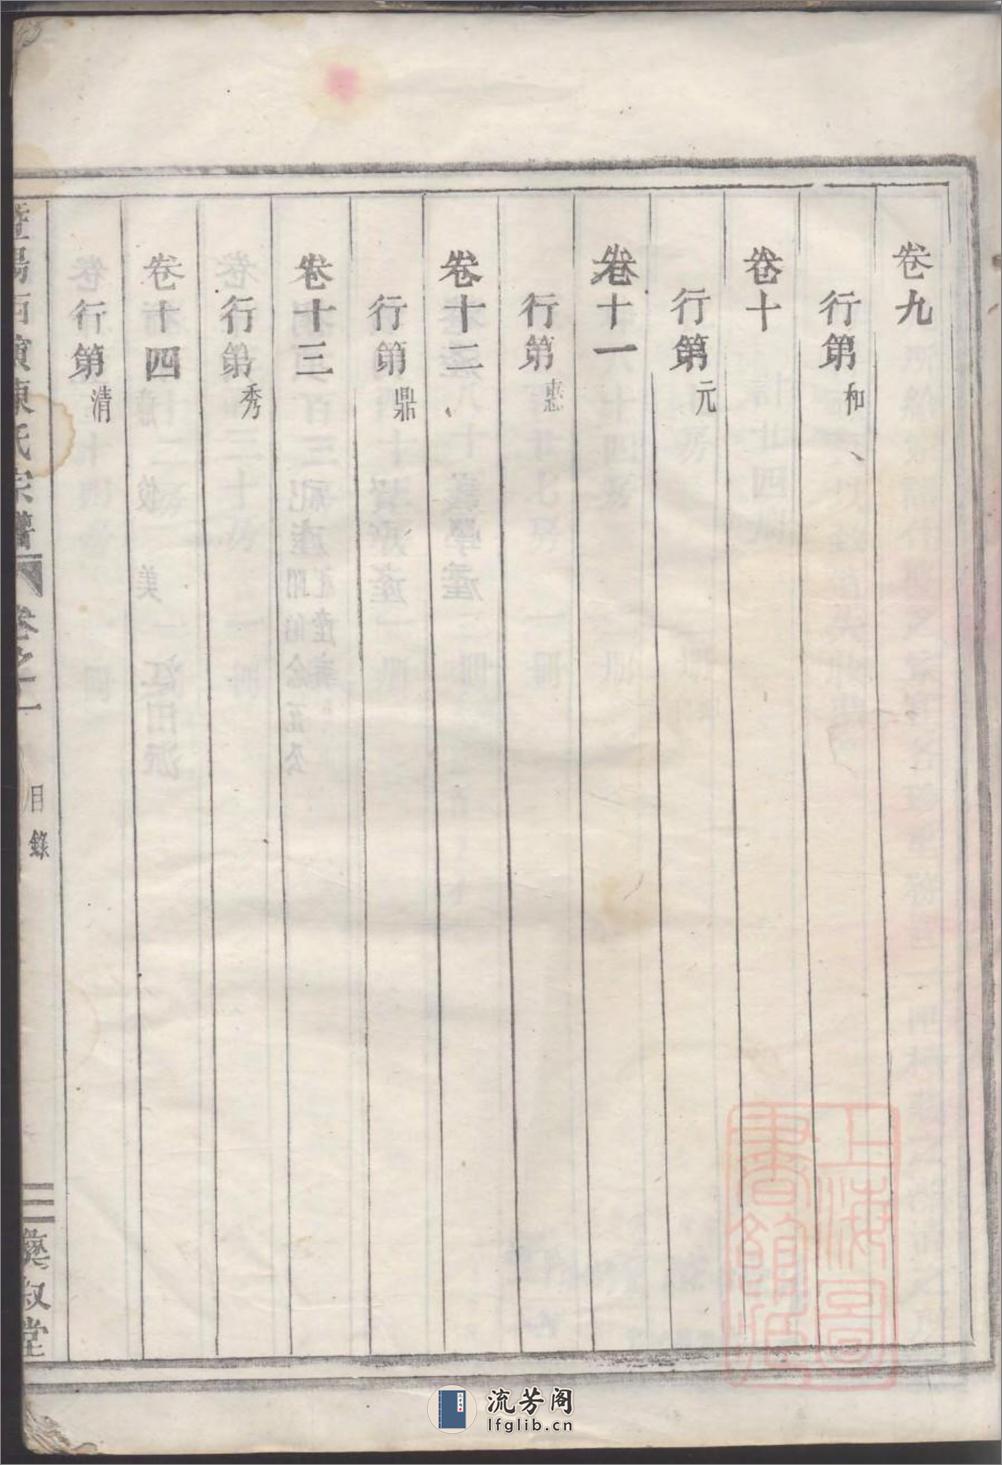 卷九
行第和
卷十
行第元
卷十一
行第惠
卷十二
行第鼎
卷十三
行第秀
卷十四
行第清
暨陽西濱陳氏宗譜 卷之一 目錄 彝敘堂
上海圖書館藏
流芳阁
lfglib.cn